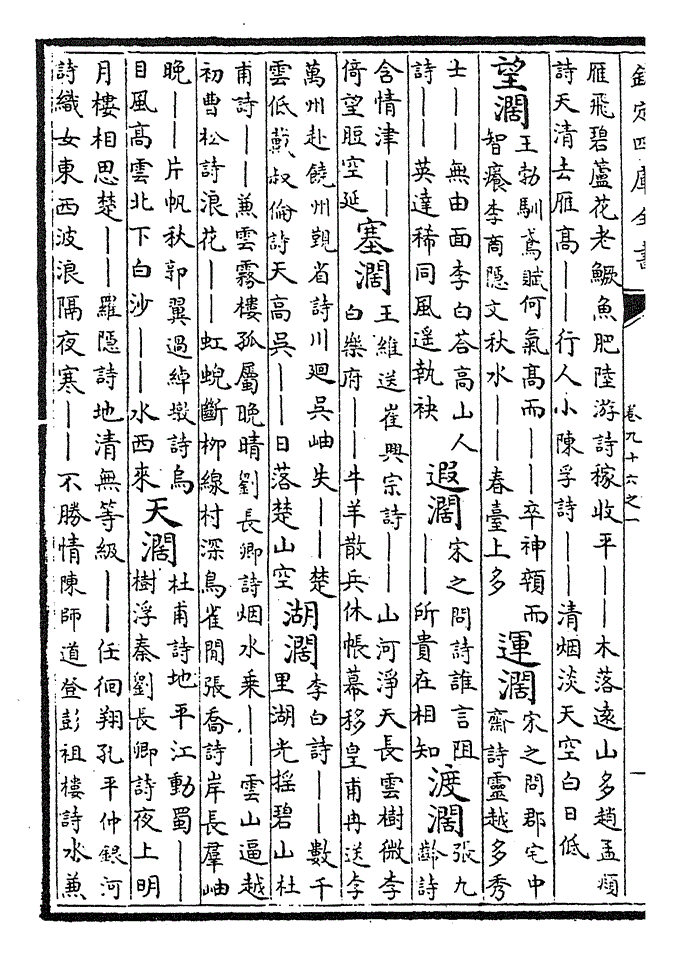 欽定四庫全書 卷九十六之一 一
雁飛碧蘆花老鱖魚肥陸游詩稼收平――木落遠山多趙孟頫
詩天清去雁高――行人小陳孚詩――清烟淡天空白日低
望濶 王勃馴鳶賦何氣高而――卒神頽而
智癢李商隱文秋水――春臺上多
運濶 宋之問郡宅中
齋詩靈越多秀
士――無由面李白荅高山人
詩――英達稀同風遥執袂
遐濶 宋之問詩誰言阻
――所貴在相知
渡濶 張九
齡詩
含情津――
倚望脰空延
塞濶 王維送崔興宗詩――山河淨天長雲樹微李
白樂府――牛羊散兵休帳幕移皇甫冉送李
萬州赴饒州覲省詩川廻吳岫失――楚
雲低戴叔倫詩天高吳――日落楚山空
湖濶 李白詩――數千
里湖光揺碧山杜
甫詩――兼雲霧樓孤屬晚晴劉長卿詩烟水乗――雲山逼越
初曹松詩浪花――虹蜺斷栁線村深鳥雀閒張喬詩岸長羣岫
晚――片帆秋郭翼過綽墩詩烏
目風高雲北下白沙――水西來
天濶 杜甫詩地平江動蜀――
樹浮秦劉長卿詩夜上明
月樓相思楚――羅隱詩地清無等級――任徊翔孔平仲銀河
詩織女東西波浪隔夜寒――不勝情陳師道登彭祖樓詩水兼